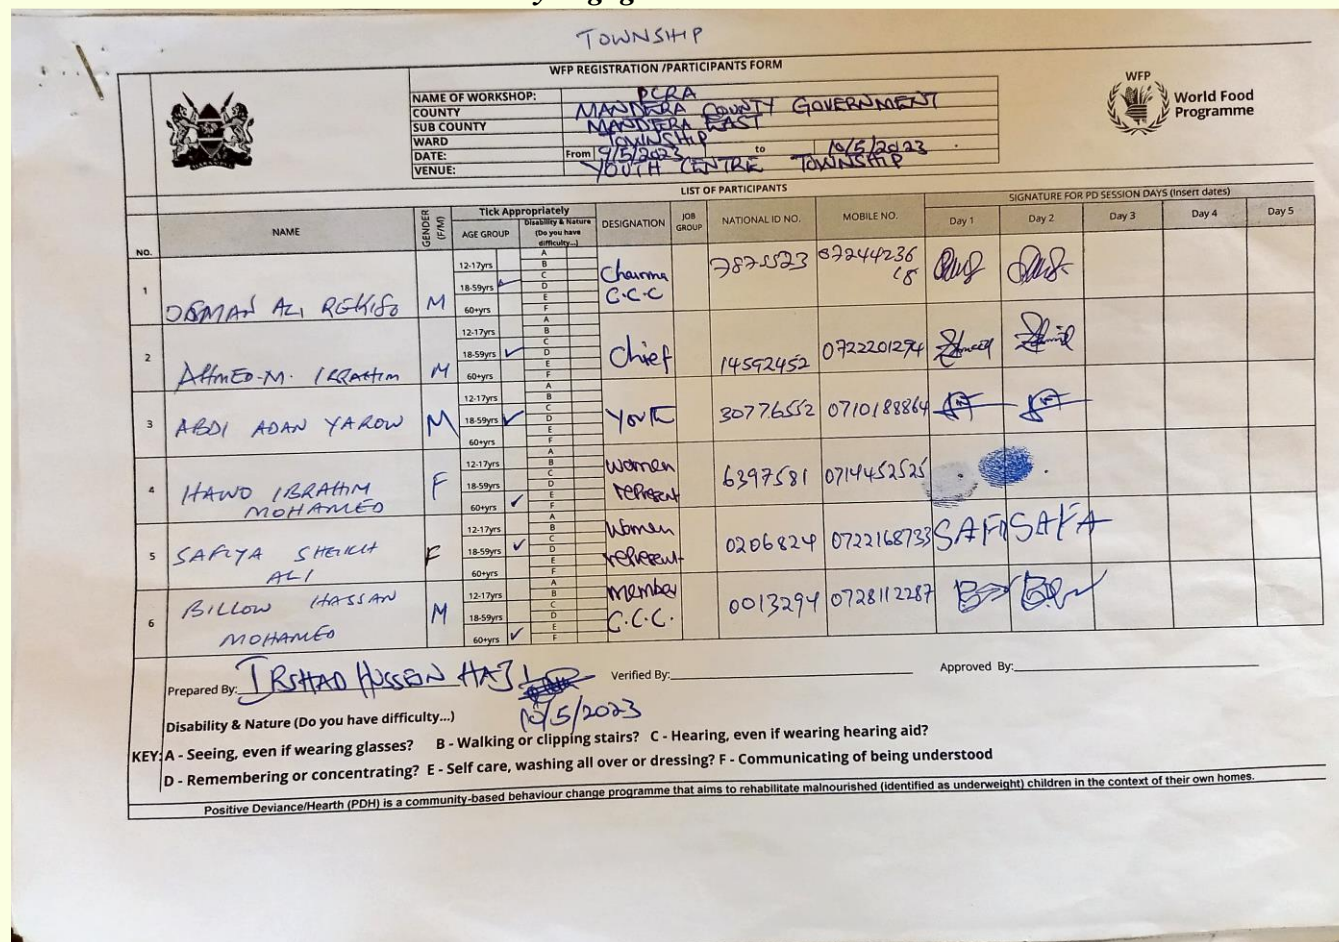 TOWNSHIP
WFP REGISTRATION /PARTICIPANTS FORM
NAME OF WORKSHOP: PCRA
COUNTY MANDERA COUNTY GOVERNMENT
SUB COUNTY MANDERA EAST
WARD TOWNSHIP
DATE: From 9/5/2023 to 10/5/2023
VENUE: YOUTH CENTRE TOWNSHIP
WFP
World Food
Programme
LIST OF PARTICIPANTS
NO. NAME GENDER (F/M) Tick Appropriately AGE GROUP Disability & Nature (Do you have difficulty...) DESIGNATION JOB GROUP NATIONAL ID NO. MOBILE NO. SIGNATURE FOR PD SESSION DAYS (Insert dates) Day 1 Day 2 Day 3 Day 4 Day 5
1 ALI M 12-17yrs 18-59yrs ✓ 60+yrs A B C D E F Chairma C.C.C
2 AHMED.M. IBRAHIM M 12-17yrs 18-59yrs ✓ 60+yrs A B C D E F Chief 14592452 0722201294
3 ABDI ADAN YAROW M 12-17yrs 18-59yrs ✓ 60+yrs A B C D E F Youth 30776552 0710188864
4 HAWO IBRAHIM MOHAMED F 12-17yrs 18-59yrs 60+yrs ✓ A B C D E F Women represent 6397581 0714452525
5 SAFIYA SHEIKH ALI F 12-17yrs 18-59yrs ✓ 60+yrs A B C D E F Women represent 0206824 0722168733 SAFA
6 BILLOW HASSAN MOHAMED M 12-17yrs 18-59yrs 60+yrs ✓ A B C D E F member C.C.C. 0013294 0728112287
Prepared By: IRSHAD HUSSEIN HAJI Verified By: Approved By:
10/5/2023
Disability & Nature (Do you have difficulty...)
KEY: A - Seeing, even if wearing glasses? B - Walking or clipping stairs? C - Hearing, even if wearing hearing aid?
D - Remembering or concentrating? E - Self care, washing all over or dressing? F - Communicating of being understood
Positive Deviance/Hearth (PDH) is a community-based behaviour change programme that aims to rehabilitate malnourished (identified as underweight) children in the context of their own homes.